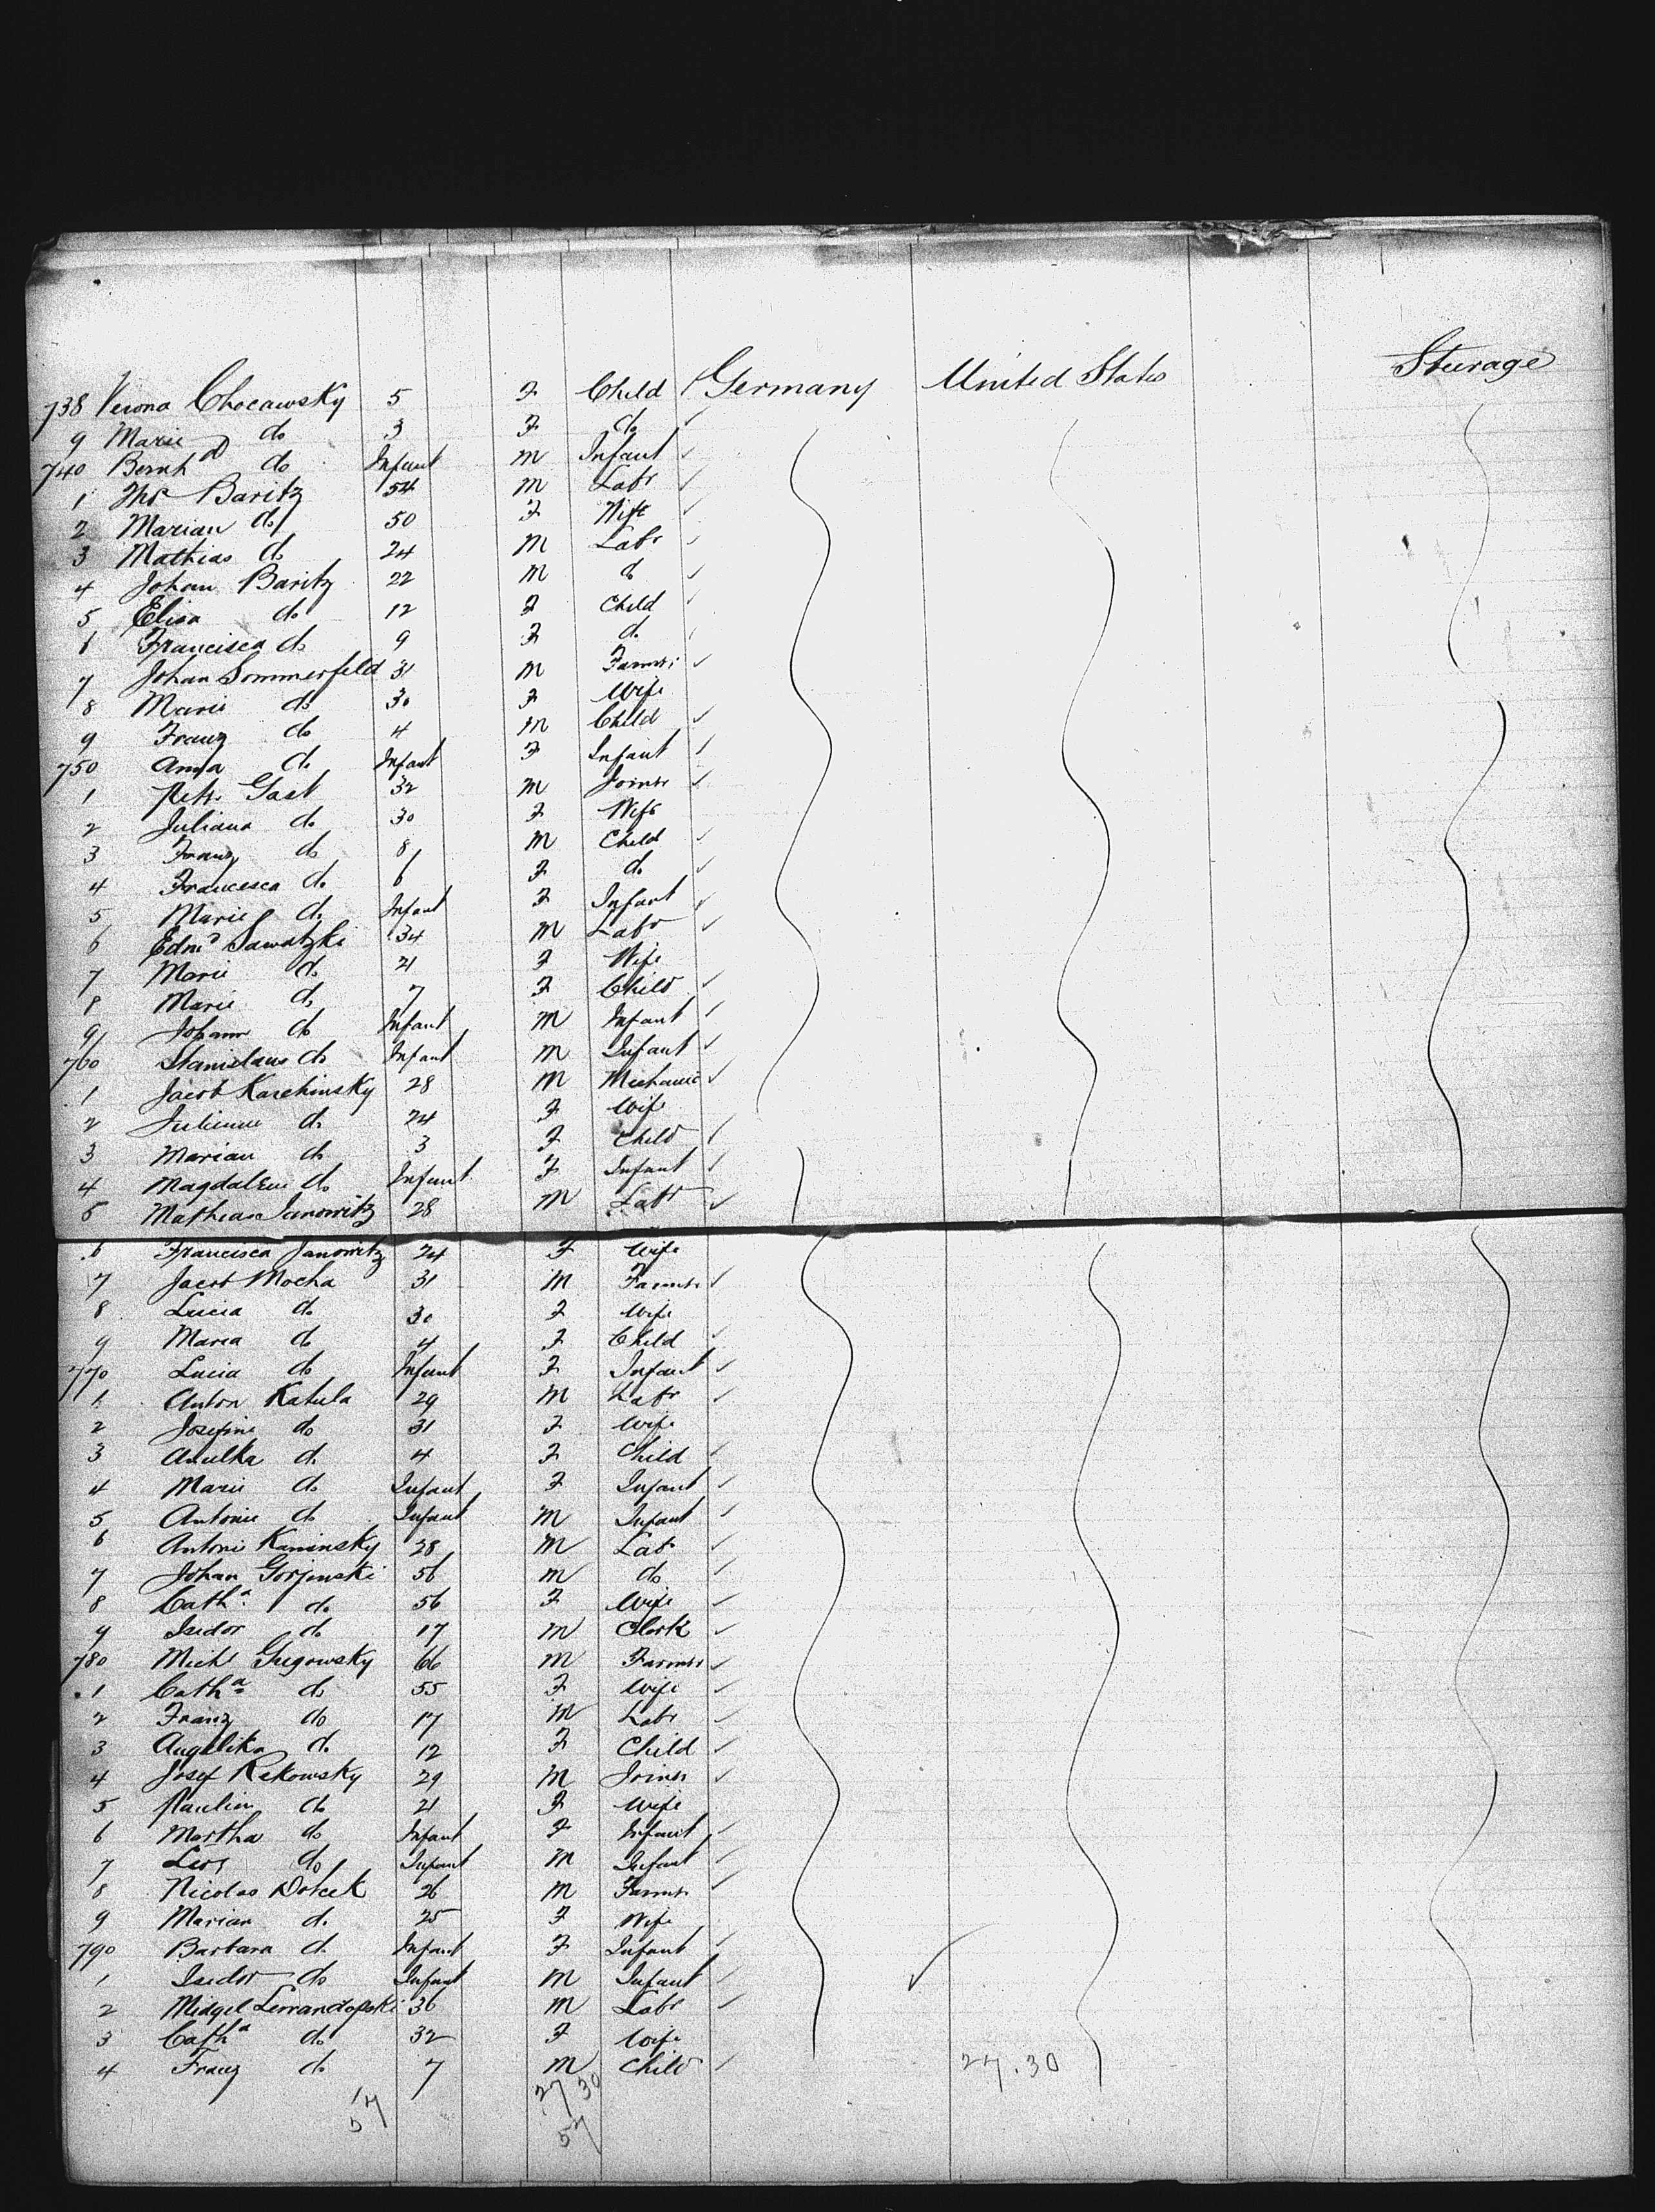 738 Verona Chocawsky 5 F Child Germany United States Steerage
9 Marie do 3 F do
740 Bernhd do Infant M Infant
1 Ths Baritz 54 M Labr
2 Marian do 50 F Wife
3 Mathias do 24 M Labr
4 Johan Baritz 22 M do
5 Elisa do 12 F Child
6 Francisca do 9 F do
7 Johan Sommerfeld 31 M Farmer
8 Marie do 30 F Wife
9 Franz do 4 M Child
750 Anna do Infant F Infant
1 Petr Gast 32 M Joiner
2 Juliana do 30 F Wife
3 Franz do 8 M Child
4 Francesca do 6 F do
5 Marie do Infant F Infant
6 Edmd Sawatzki 34 M Labr
7 Marie do 21 F Wife
8 Marie do 7 F Child
9 Johann do Infant M Infant
760 Stanislaus do Infant M Infant
1 Jacob Karchinsky 28 M Mechanic
2 Julianne do 24 F Wife
3 Marian do 3 F Child
4 Magdalene do Infant F Infant
5 Mathias Janowitz 28 M Labr
6 Francisca Janowitz 24 F Wife
7 Jacob Mocha 31 M Farmer
8 Lucia do 30 F Wife
9 Maria do 4 F Child
770 Lucia do Infant F Infant
1 Anton Katula 29 M Labr
2 Josefine do 31 F Wife
3 do 4 F Child
4 Marie do Infant F Infant
5 Antonie do Infant M Infant
6 Antoni Kaminsky 28 M Labr
7 Johan Gorjinski 56 M do
8 Catha do 56 F Wife
9 Isidor do 17 M Clerk
780 Michl Gregowsky 66 M Farmer
1 Catha do 55 F Wife
2 Franz do 17 M Labr
3 Angelika do 12 F Child
4 Josef Rekowsky 29 M Joiner
5 Paulin do 21 F Wife
6 Martha do Infant F Infant
7 Leos do Infant M Infant
8 Nicolas 26 M Farmer
9 Marian do 25 F Wife
790 Barbara do Infant F Infant
1 Isidor do Infant M Infant
2 36 M Labr
3 Catha do 32 F Wife
4 Franz do 7 M Child 27.30
57 27 30
57